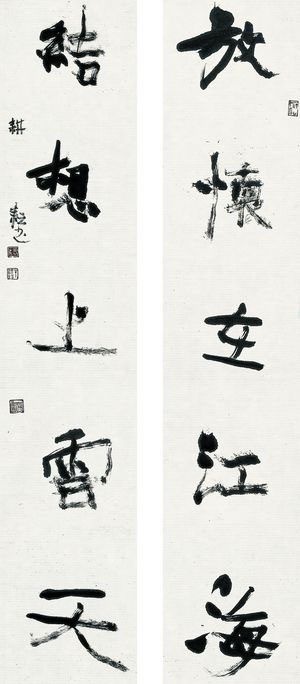 放懷在江海
結想上雲天